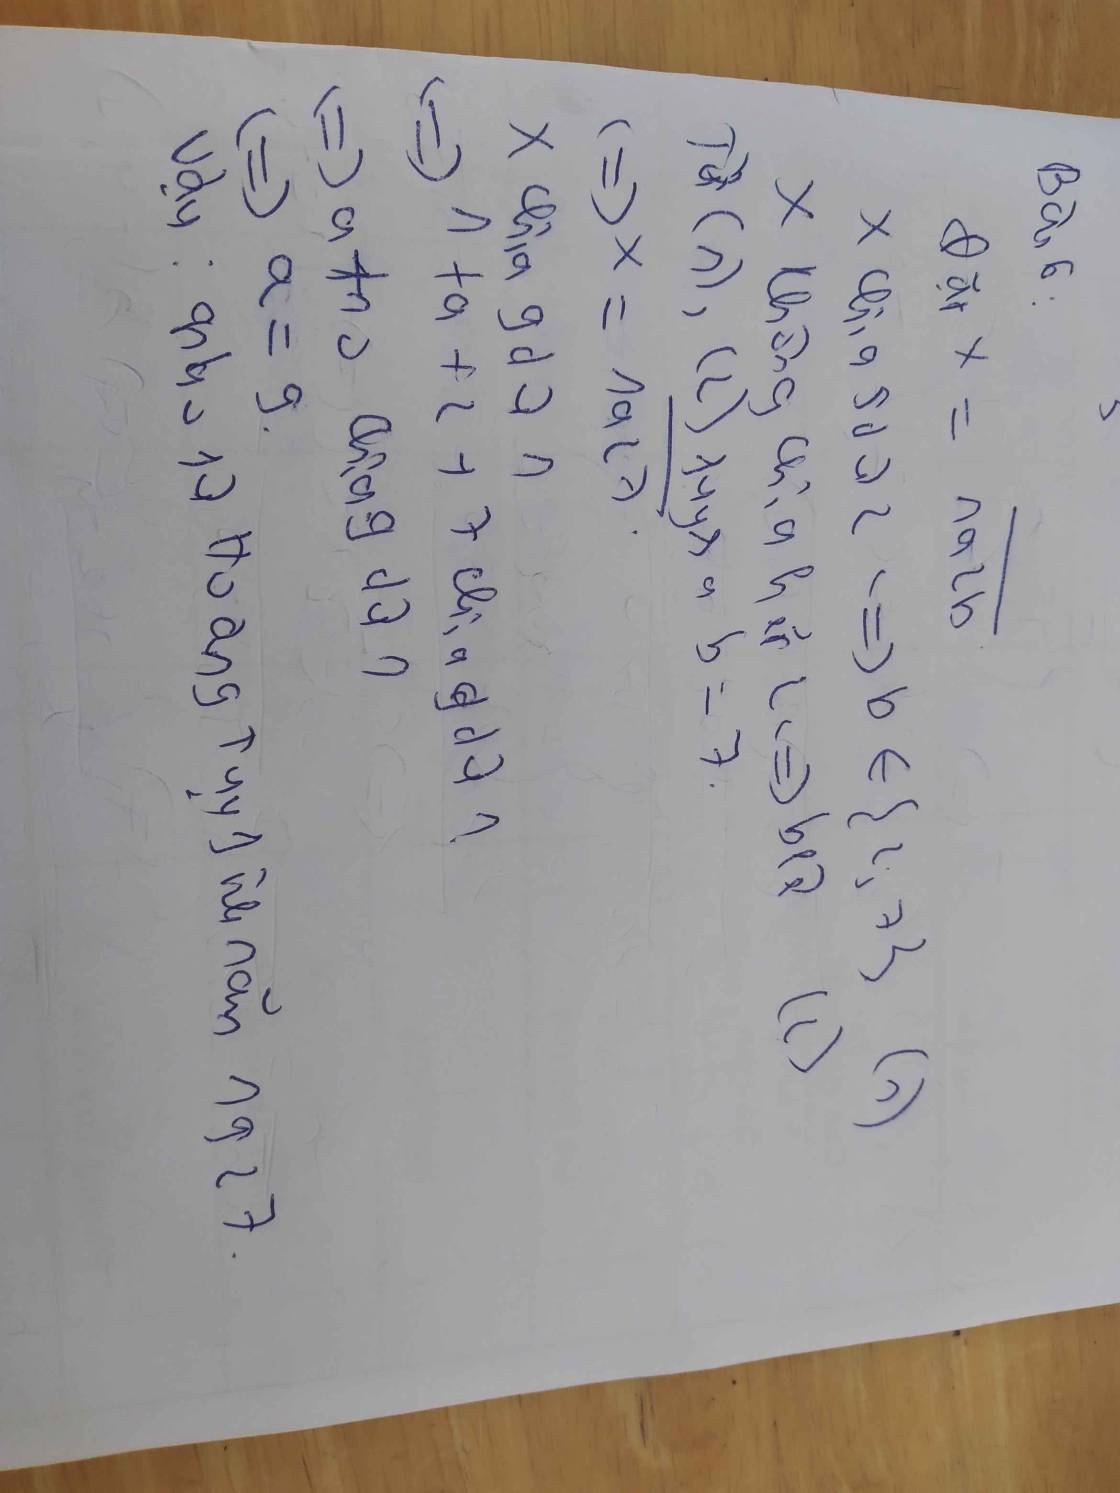 Bài 6:
Đặt x = 1a2b
x chia 5 dư 2 <=> b ∈ {2, 7} (1)
x không chia hết 2 <=> b lẻ (2)
Từ (1), (2) suy ra b = 7.
<=> x = 1a27.
x chia 9 dư 1
<=> 1 + a + 2 + 7 chia 9 dư 1
<=> a + 10 chia 9 dư 1
<=> a = 9.
Vậy: giáo sư Hoàng Tụy sinh năm 1927.